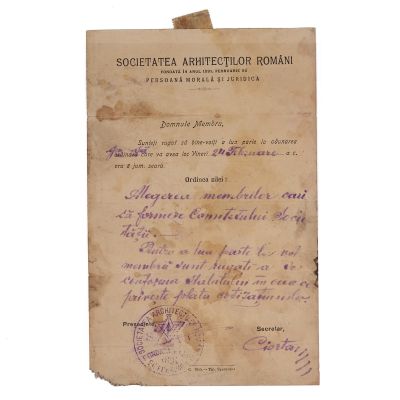 SOCIETATEA ARHITECȚILOR ROMÂNI
FONDATĂ ÎN ANUL 1891, FEBRUARIE 26
PERSOANĂ MORALĂ ȘI JURIDICĂ
Domnule Membru,
Sunteți rugat să bine-voiți a lua parte la adunarea
care va avea loc Vineri 24 Februarie a.c.
ora 8 jum. seară.
Ordinea zilei:
Alegerea membrilor cari
să formeze Comitetului Socie
tății.
Pentru a lua parte la vot
membrii sunt rugați a se
conforma Statutului în ceea ce
privește plata cotizațiunilor
Președinte
Secretar,
SOCIETATEA ARHITECȚILOR